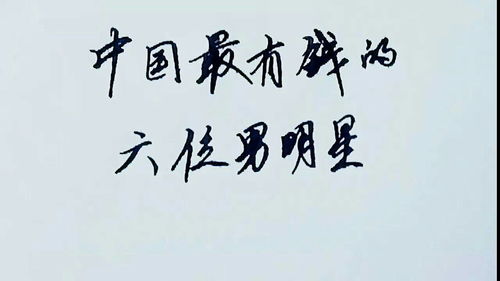 中国最有钱的
六位男明星